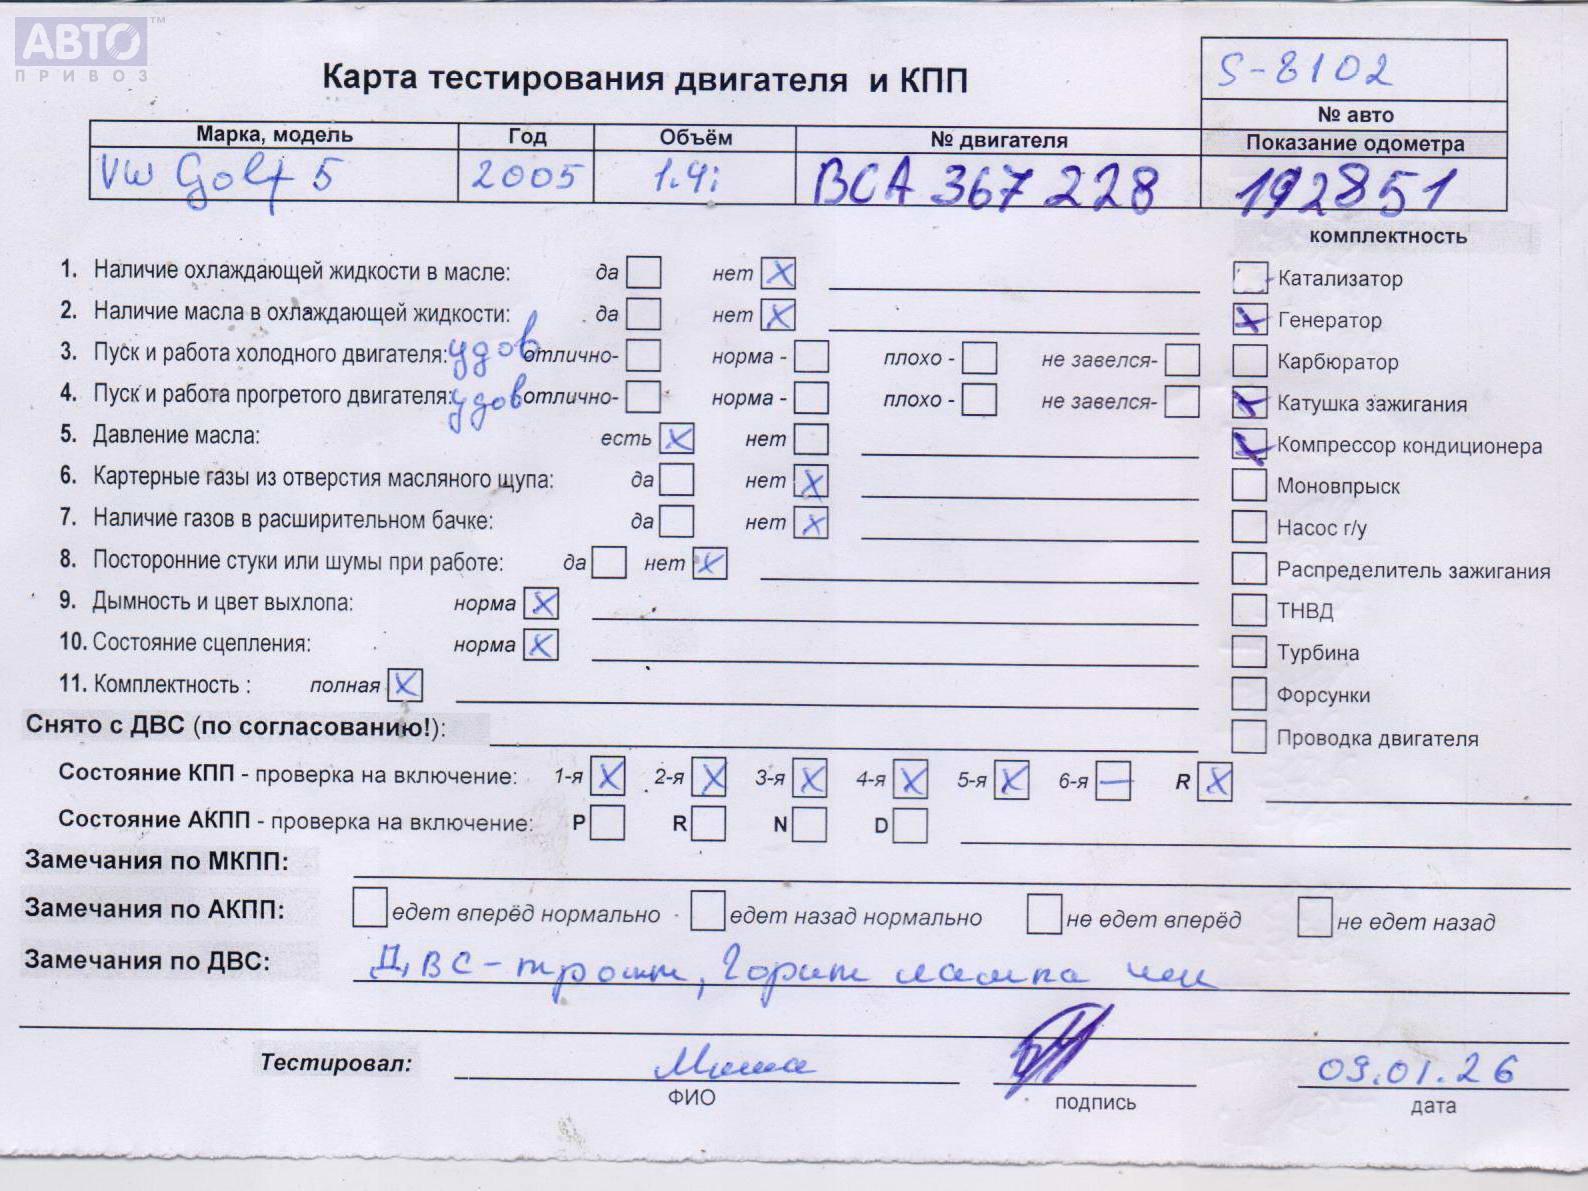 АВТО™
ПРИВОЗ
S-8102
Карта тестирования двигателя и КПП
№ авто
Марка, модель Год Объём № двигателя Показание одометра
VW Golf 5 2005 1.4i BCA 367 228 192851
комплектность
1. Наличие охлаждающей жидкости в масле: да нет X
Катализатор
2. Наличие масла в охлаждающей жидкости: да нет X
X Генератор
3. Пуск и работа холодного двигателя: удов отлично- норма - плохо - не завелся-
Карбюратор
4. Пуск и работа прогретого двигателя: удов отлично- норма - плохо - не завелся-
X Катушка зажигания
5. Давление масла: есть X нет
X Компрессор кондиционера
6. Картерные газы из отверстия масляного щупа: да нет X
Моновпрыск
7. Наличие газов в расширительном бачке: да нет X
Насос г/у
8. Посторонние стуки или шумы при работе: да нет X
Распределитель зажигания
9. Дымность и цвет выхлопа: норма X
ТНВД
10. Состояние сцепления: норма X
Турбина
11. Комплектность : полная X
Форсунки
Снято с ДВС (по согласованию!):
Проводка двигателя
Состояние КПП - проверка на включение: 1-я X 2-я X 3-я X 4-я X 5-я X 6-я — R X
Состояние АКПП - проверка на включение: P R N D
Замечания по МКПП:
Замечания по АКПП: едет вперёд нормально едет назад нормально не едет вперёд не едет назад
Замечания по ДВС: ДВС - троит, Горит лампа чек
Тестировал: Миша 09.01.26
ФИО подпись дата